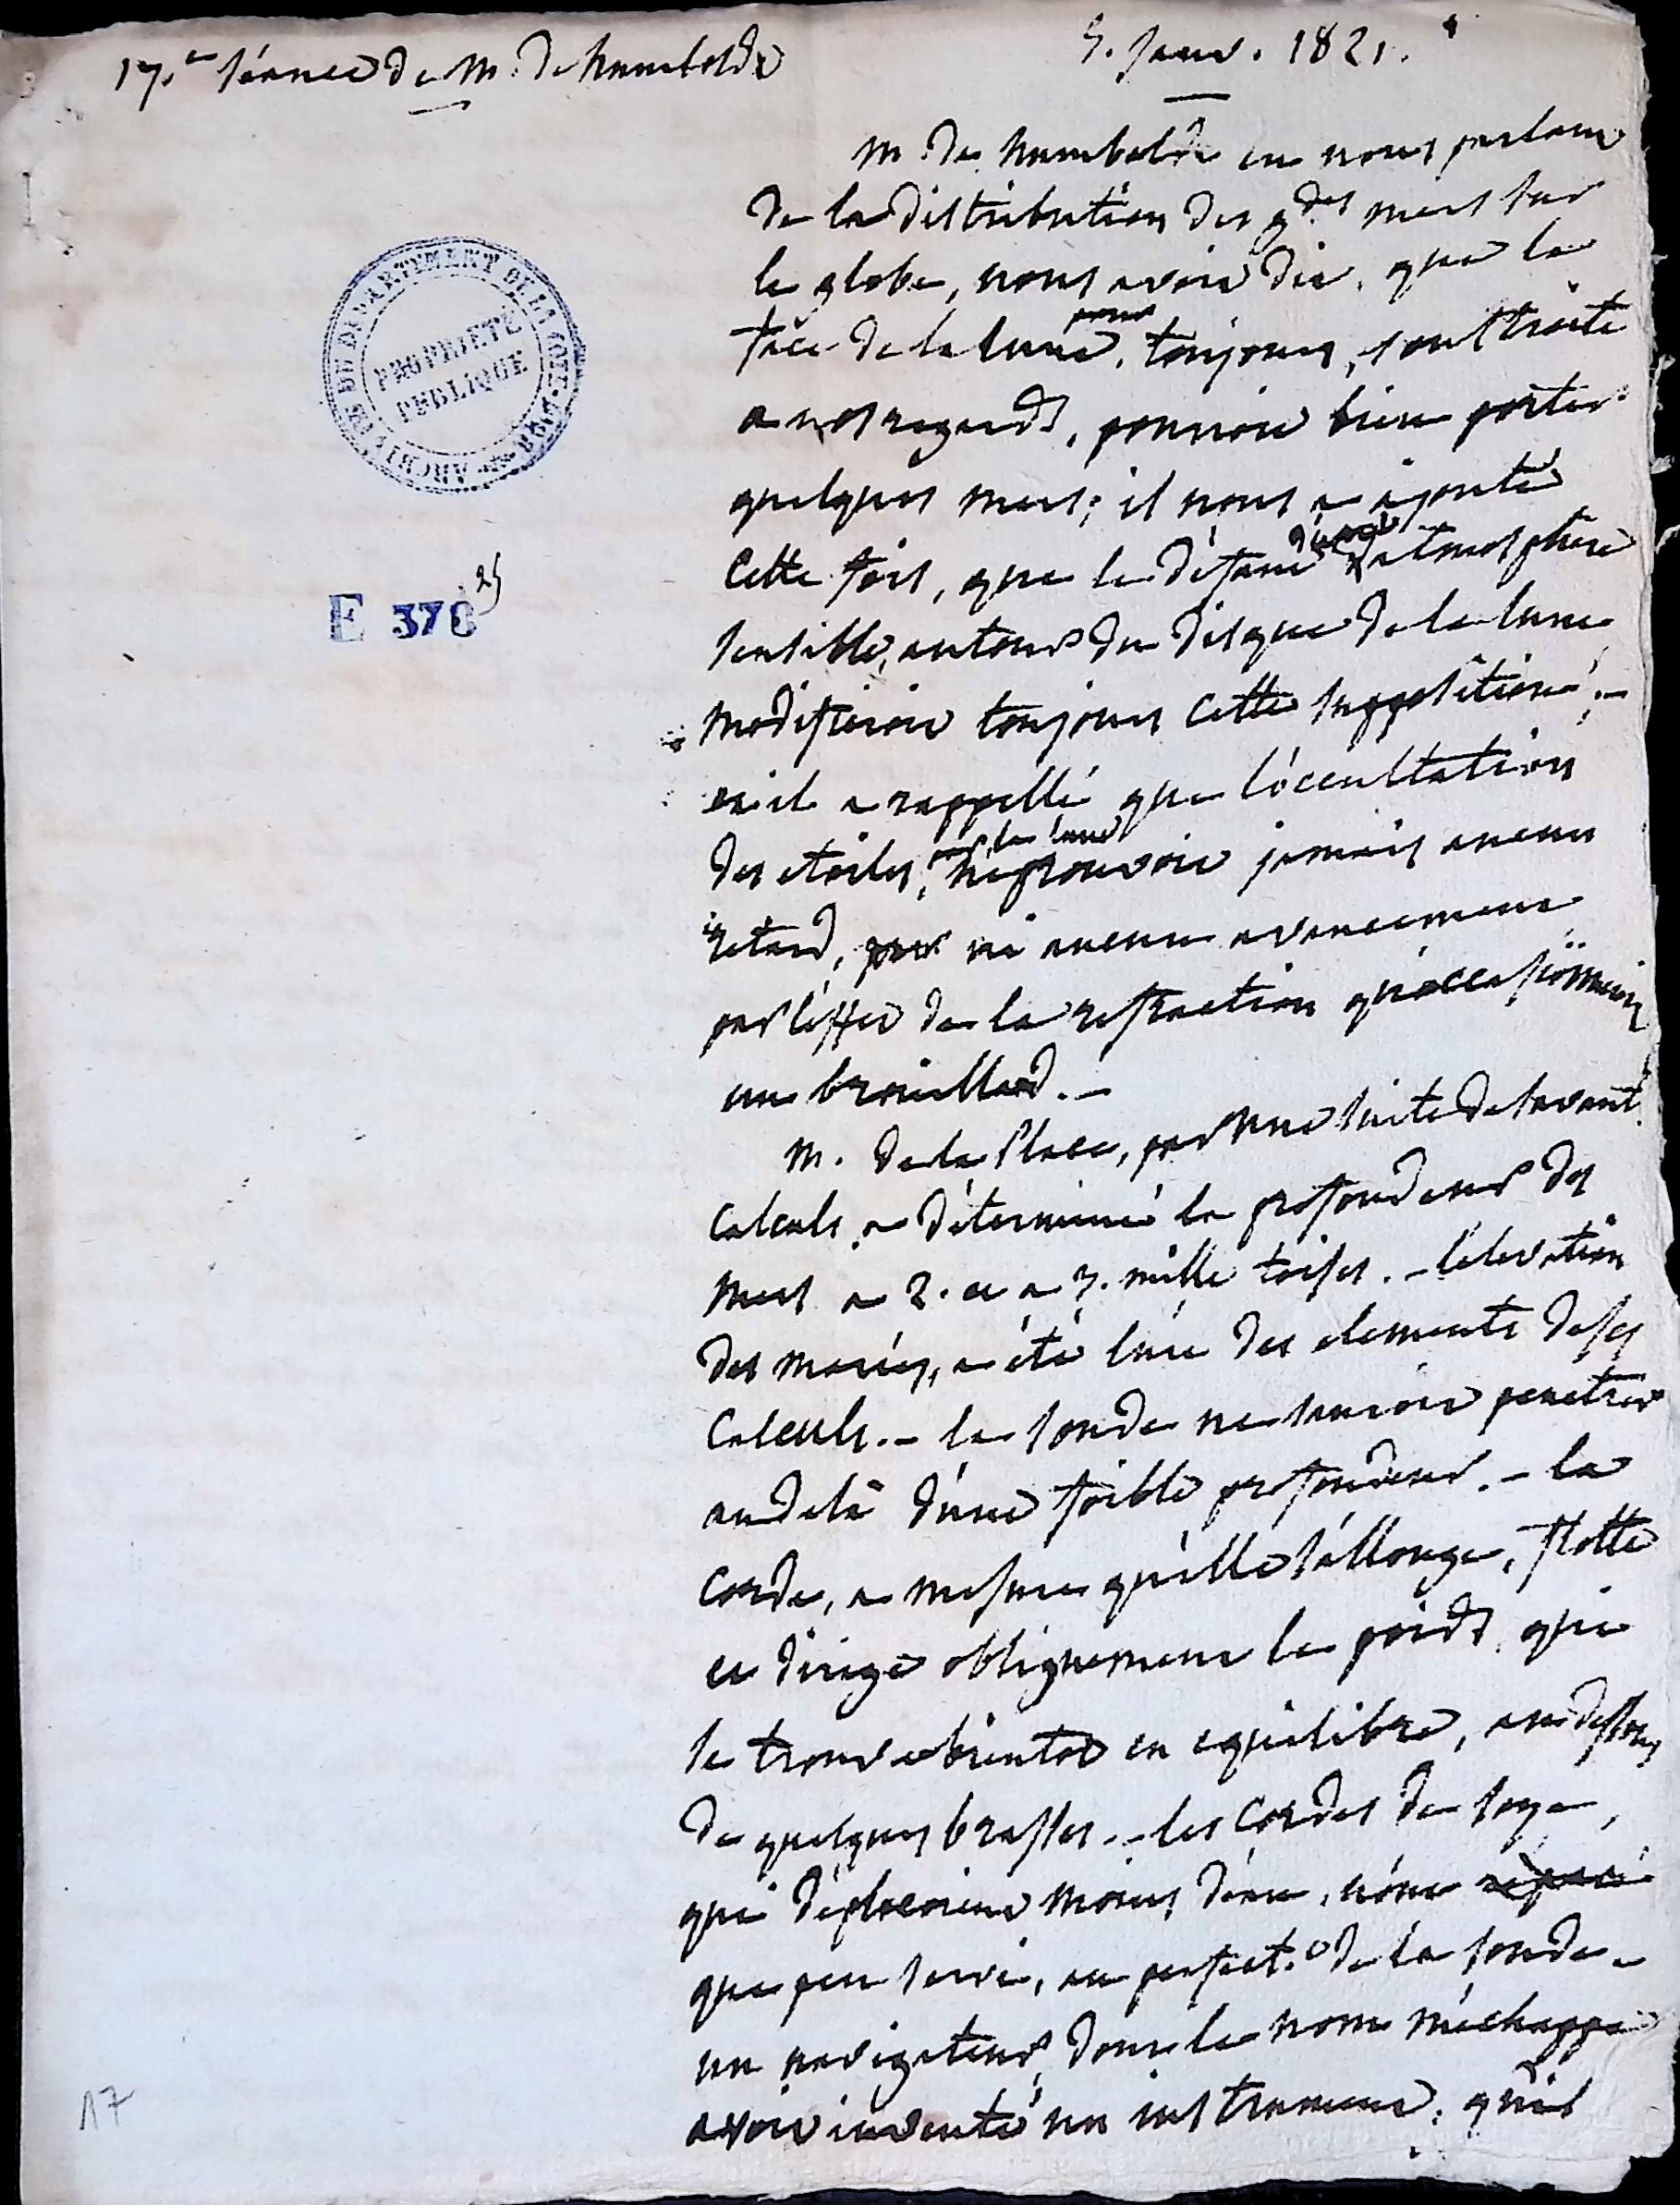 17.e séance de M. de humboldt
5. Janv. 1821.
M. de humboldt en nous parlant
de la distribution des gdes mers sur
le globe, nous avoit dit, que la
face de la lune, pour toujours, soustraite
a nos regards, pourroit bien porter
quelques mers; il nous a ajouté
cette fois, que le défaut d'atmosphère
sensible, autour du disque de la lune
modifieroit toujours cette supposition; -
et il a rappellé que l'occultation
des etoiles, par la lune n'eprouvoit jamais aucun
retard, ni aucun avancement
par l'effet de la refraction qu'occasionneroit
un brouillard. -
M. de la Place, par une suite de savants
calculs, a déterminé la profondeur des
mers a 2. et a 3. mille toises. - l'elevation
des marées, a été l'un des elements de ses
calculs. - la sonde ne sauroit penetrer
au delà d'une foible profondeur. - la
corde, a mesure qu'elle s'allonge, flotte
et dirige obliquement le poids qui
se trouve bientot en equilibre, au dessous
de quelques brasses. - les cordes de soye,
qui déplacoient moins d'eau, n'ont
que peu servi, au perfect.t de la sonde -
un navigateur, dont le nom m'echappe
avoit inventé un instrument, qui
ARCHIVES DU DÉPARTEMENT DE LA CÔTE-D'OR
PROPRIÉTÉ
PUBLIQUE
E 378 25
17